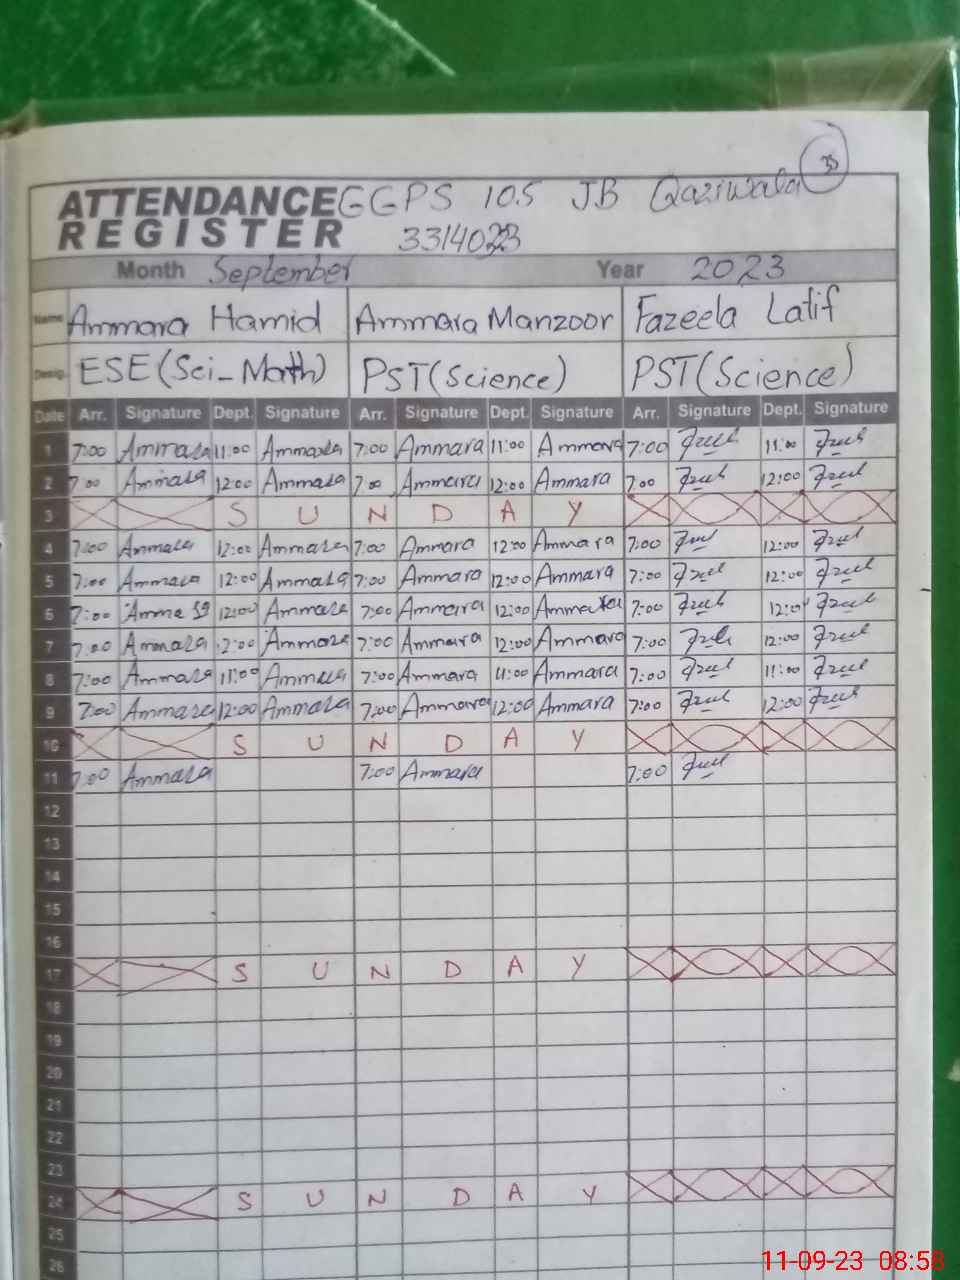 35
ATTENDANCE GGPS 105 JB Qaziwala
REGISTER 33140
Month September Year 2023
Name Ammara Hamid Ammara Manzoor Fazeela Latif
Desig. ESE (Sci_Math) PST (Science) PST (Science)
Date Arr. Signature Dept. Signature Arr. Signature Dept. Signature Arr. Signature Dept. Signature
1 7:00 Ammara 11:00 Ammara 7:00 Ammara 11:00 Ammara 7:00 11:00
2 7:00 Ammara 12:00 Ammara 7:00 Ammara 12:00 Ammara 7:00 12:00
3 S U N D A Y
4 7:00 Ammara 12:00 Ammara 7:00 Ammara 12:00 Ammara 7:00 12:00
5 7:00 Ammara 12:00 Ammara 7:00 Ammara 12:00 Ammara 7:00 12:00
6 7:00 Ammara 12:00 Ammara 7:00 Ammara 12:00 Ammara 7:00 12:00
7 7:00 Ammara 12:00 Ammara 7:00 Ammara 12:00 Ammara 7:00 12:00
8 7:00 Ammara 11:00 Ammara 7:00 Ammara 11:00 Ammara 7:00 11:00
9 7:00 Ammara 12:00 Ammara 7:00 Ammara 12:00 Ammara 7:00 12:00
10 S U N D A Y
11 7:00 Ammara 7:00 Ammara 7:00
12
13
14
15
16
17 S U N D A Y
18
19
20
21
22
23
24 S U N D A Y
25
26
11-09-23 08:58